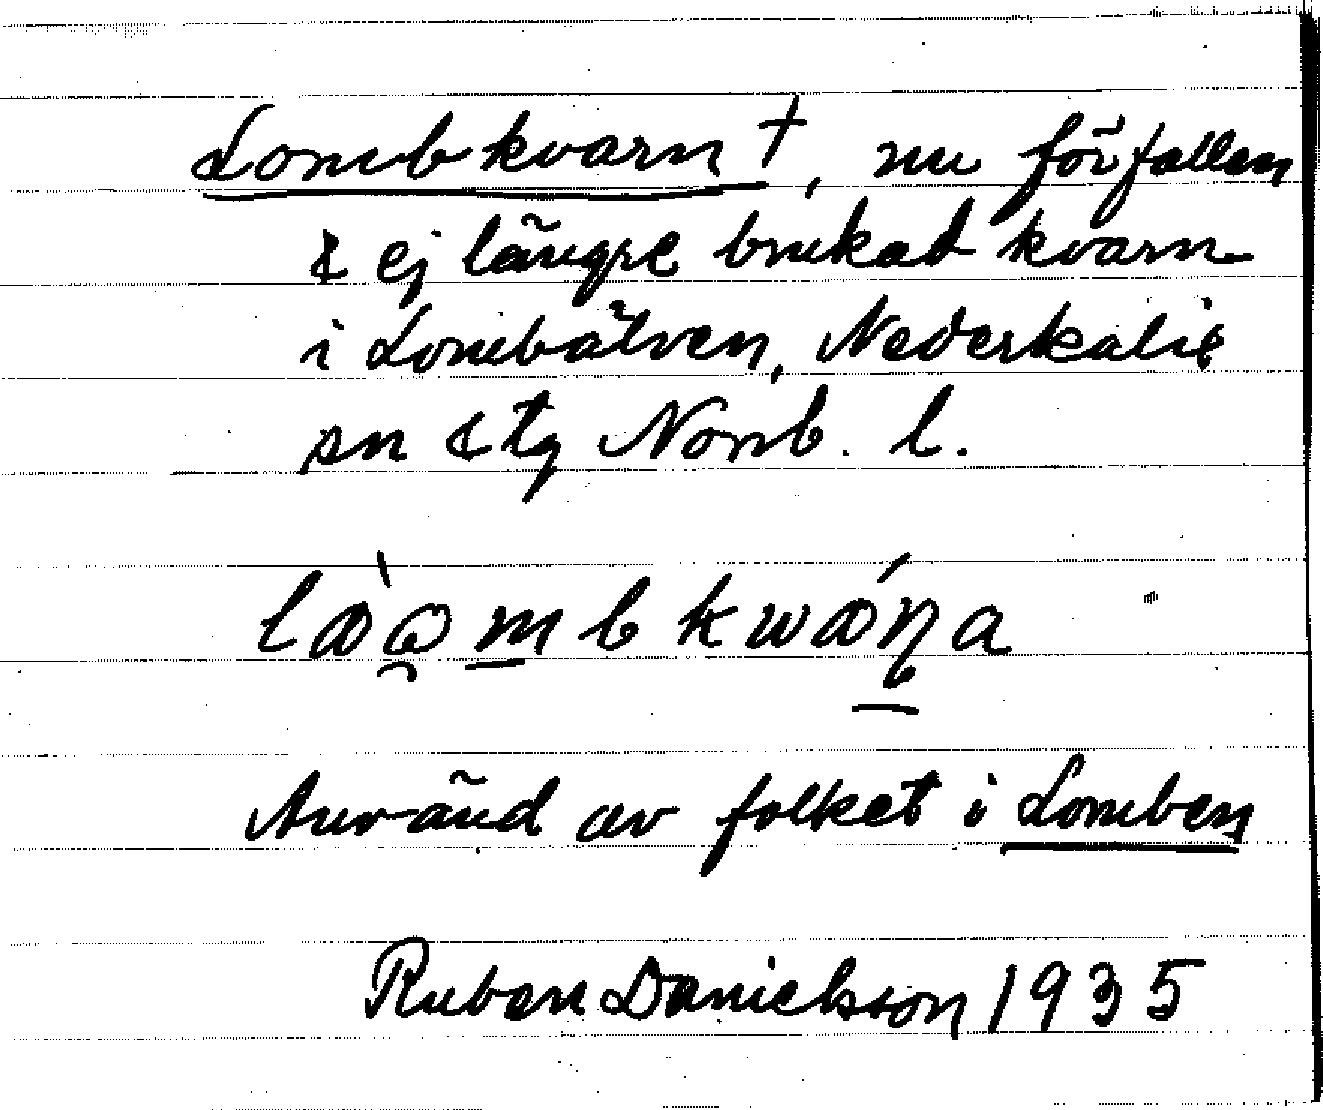 Lombkvarn †, nu förfallen
& ej längre brukad kvarn
i Lombälven, Nederkalix
sn & tg Norrb. l.
Använd av folket i Lomben
Ruben Danielsson 1935